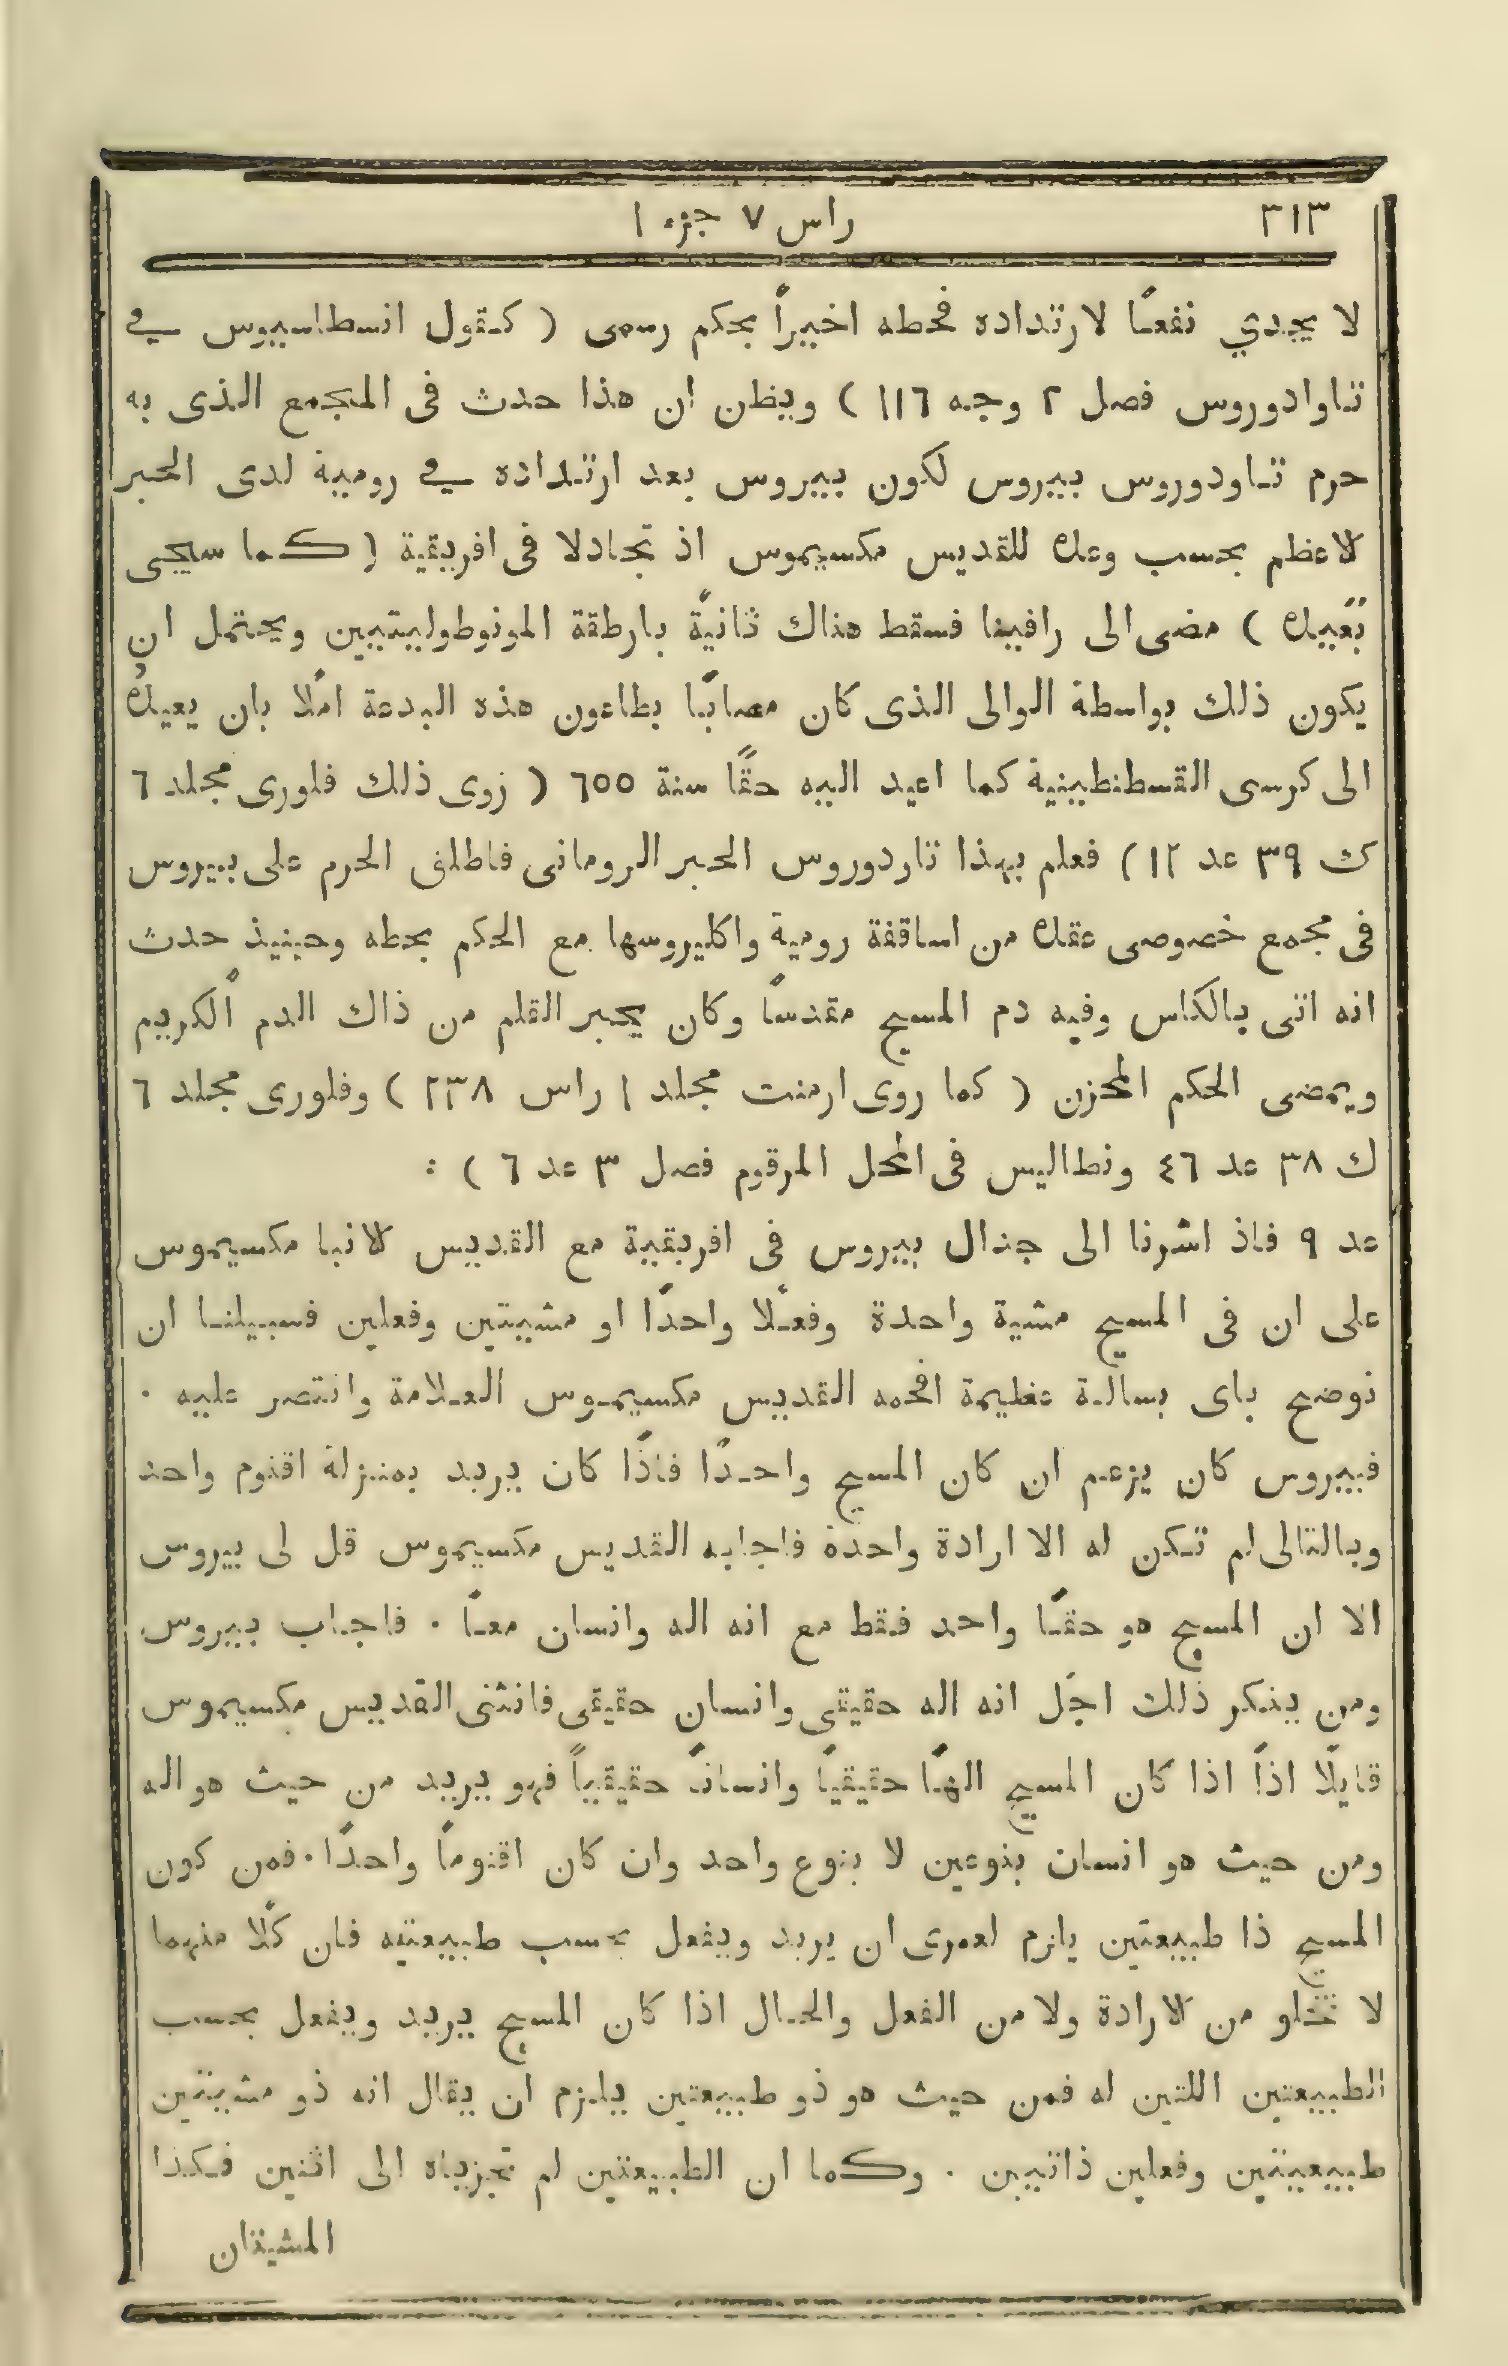 ٣١٣ راس ٧ جزء ١
لا يجدي نفعًا لارتداده فحطه اخيراً بحكم رسمى ( كقول انسطاسيوس في
تاوادوروس فصل ٢ وجه ١١٦ ) ويظن ان هذا حدث فى المجمع الذى به
حرم تاودوروس بيروس لكون بيروس بعد ارتداده في رومية لدى الحبر
الاعظم بحسب وعده للقديس مكسيموس اذ تجادلا فى افريقية ( كما سيجى
بُعَيده ) مضى الى رافينا فسقط هناك ثانيةً بارطقة المونوطوليتيين ويحتمل ان
يكون ذلك بواسطة الوالى الذى كان مصابًا بطاعون هذه البدعة املًا بان يعيدهُ
الى كرسى القسطنطينية كما اعيد اليه حقًا سنة ٦٥٥ ( روى ذلك فلورى مجلد ٦
ك ٣٩ عد ١٢ ) فعلم بهذا تاردوروس الحبر الرومانى فاطلق الحرم على بيروس
فى مجمع خصوصى عقده من اساقفة رومية واكليروسها مع الحكم بحطه وحينيذ حدث
انه اتى بالكاس وفيه دم المسيح مقدسًا وكان يحبر القلم من ذاك الدم الكريم
ويمضى الحكم المحزن ( كما روى ارمنت مجلد ١ راس ٢٣٨ ) وفلورى مجلد ٦
ك ٣٨ عد ٤٦ ونطاليس فى المحل المرقوم فصل ٣ عد ٦ ) :
عد ٩ فاذ اشرنا الى جدال بيروس فى افريقية مع القديس الانبا مكسيموس
على ان فى المسيح مشية واحدة وفعلًا واحدًا او مشيتين وفعلين فسبيلنا ان
نوضح باى بسالة عظيمة افحمه القديس مكسيموس العلامة وانتصر عليه .
فبيروس كان يزعم ان كان المسيح واحدًا فاذًا كان يريد بمنزلة اقنوم واحد
وبالتالى لم تكن له الا ارادة واحدة فاجابه القديس مكسيموس قل لى بيروس
الا ان المسيح هو حقًا واحد فقط مع انه اله وانسان معًا . فاجاب بيروس
ومن ينكر ذلك اجَل انه اله حقيقى وانسان حقيقى فانثنى القديس مكسيموس
قايلًا اذاً اذا كان المسيح الهًا حقيقيًا وانسانًا حقيقياً فهو يريد من حيث هو اله
ومن حيث هو انسان بنوعين لا بنوع واحد وان كان اقنوماً واحدًا . فمن كون
المسيح ذا طبيعتين يلزم لعمرى ان يريد ويفعل بحسب طبيعتيه فان كلًا منهما
لا تخلو من الارادة ولا من الفعل والحال اذا كان المسيح يريد ويفعل بحسب
الطبيعتين اللتين له فمن حيث هو ذو طبيعتين يلزم ان يقال انه ذو مشيتين
طبيعيتين وفعلين ذاتيين . وكما ان الطبيعتين لم تجزياه الى اثنين فكذا
المشيتان